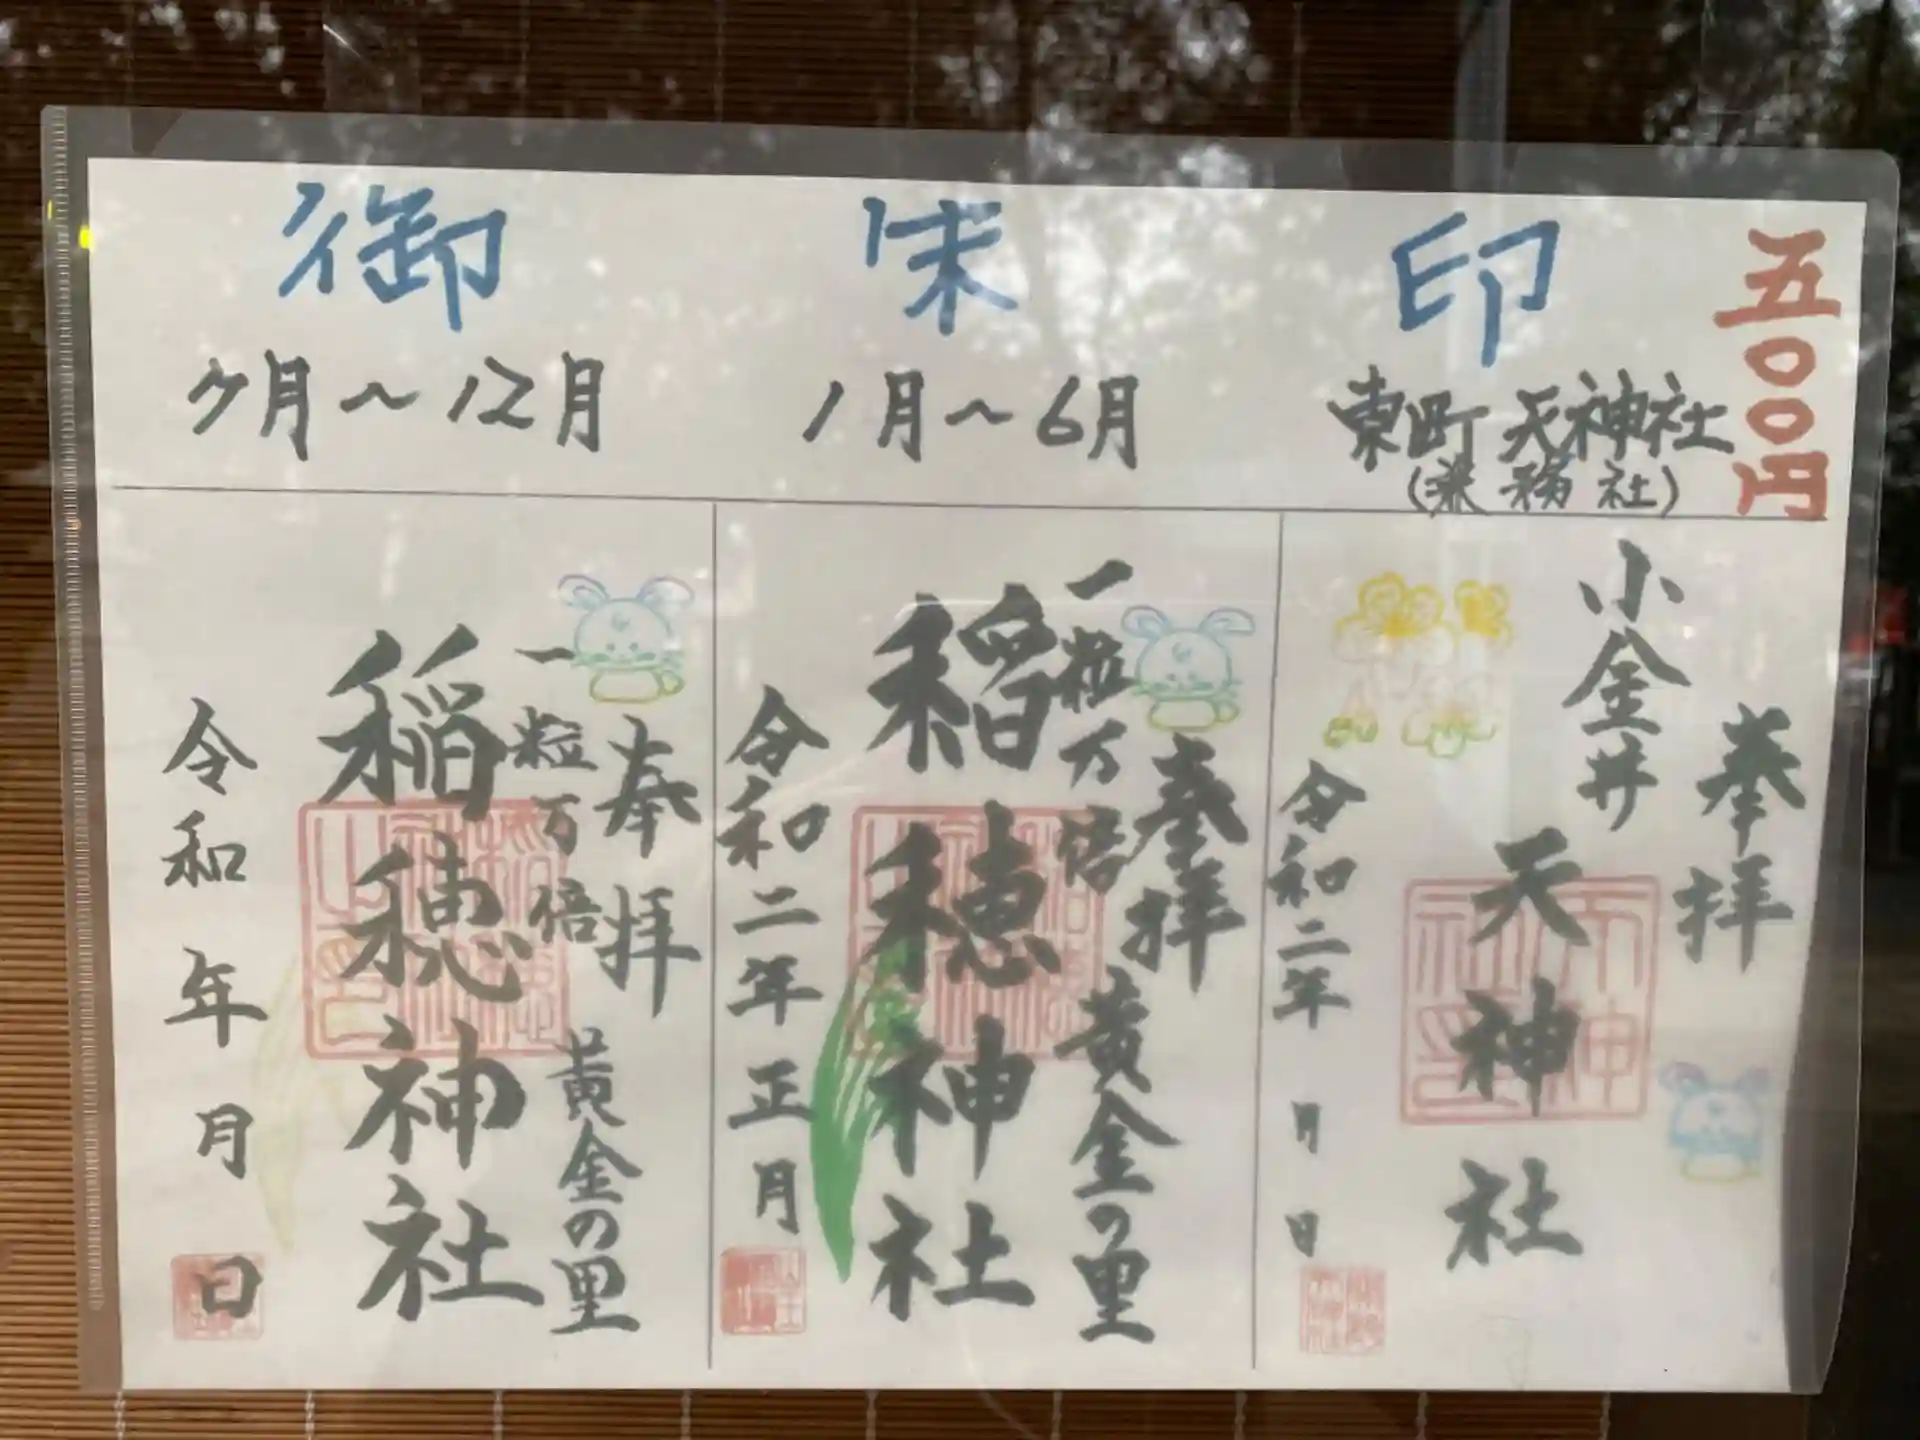 御 朱 印
五〇〇円
7月～12月
1月～6月
東町天神社
(兼務社)
奉拝
一粒万倍
黄金の里
稲穂神社
令和 年 月 日
奉拝
一粒万倍
黄金の里
稲穂神社
令和二年正月
奉拝
小金井
天神社
令和二年 月 日